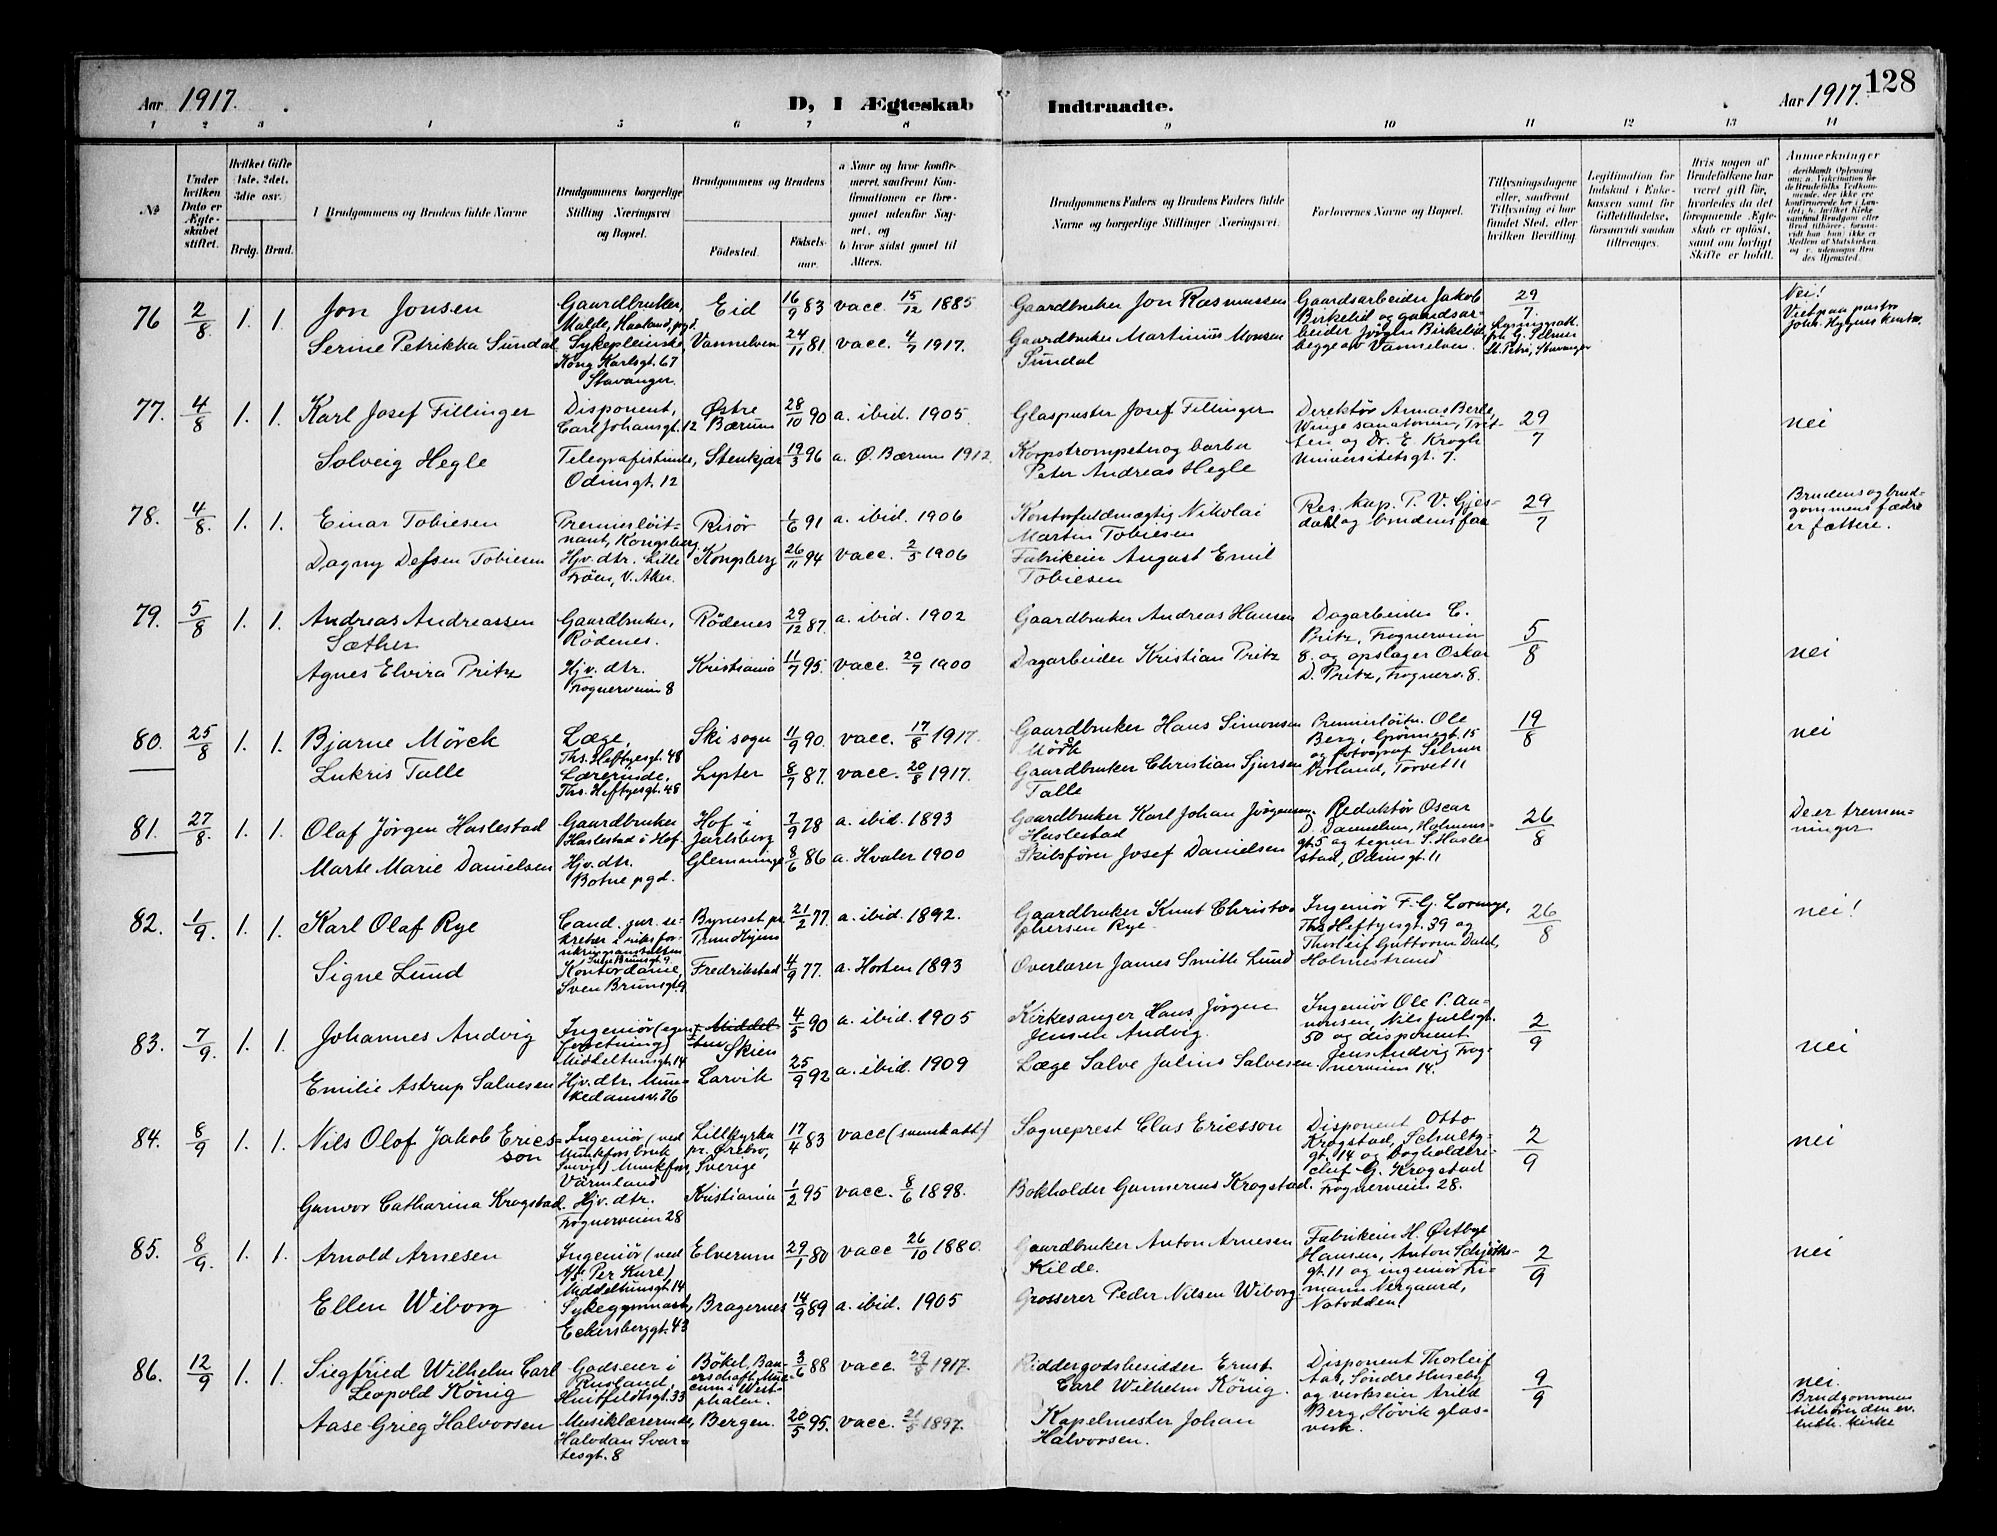 Aar 1917.
D, I Ægteskab Indtraadte.
Aar 1917. 128
1 2 3 4 5 6 7 8 9 10 11 12 13 14
№
Under hvilken Dato er Ægteskabet stiftet.
Hvilket Gifte 1ste, 2det, 3die osv.
Brdg. Brud.
I Brudgommens og Brudens fulde Navne
Brudgommens borgerlige Stilling Næringsvei og Bopæl.
Brudgommens og Brudens
Fødested. Fødselsaar.
a Naar og hvor konfirmeret, saafremt Konfirmationen er foregaaet udenfor Sognet, og
b hvor sidst gaaet til Alters.
Brudgommens Faders og Brudens Faders fulde Navne og borgerlige Stillinger Næringsvei.
Forlovernes Navne og Bopæl.
Tillysningsdagene eller, saafremt Tillysning ei har fundet Sted, efter hvilken Bevilling.
Legitimation for Indskud i Enkekassen samt for Giftetilladelse, forsaavidt saadan tiltrænges.
Hvis nogen af Brudefolkene har været gift før, hvorledes da det foregaaende Ægteskab er opløst, samt om lovligt Skifte er holdt.
Anmerkninger
76 2/8 1. 1. Jon Jonsen
Gaardbruker, Eid 16/9 83 vacc. 15/12 1885
Gaardbruker Jon Rasmussen
Gaardsarbeider Jakob Birkelid og gaardsarbeider Jörgen Birkelid, begge av Vannelven.
29/7.
Nei!
Serine Petrikka Sundal
Sykepleierske Kong Karlsgt. 67 Stavanger.
Vannelven 24/11 81 vacc. 4/7 1917.
Gaardbruker Martinius Monsen Sundal
77. 4/8 1. 1. Karl Josef Fillinger
Disponent, Carl Johansgt. 12
Østre Bærum 28/10 90 a. ibid. 1905.
Glaspuster Josef Fillinger
29/7
nei
Solveig Hegle
Telegrafistinde, Odinsgt. 12
Stenkjær 19/3 96 a. Ø. Bærum 1912.
Korpstrompeter og barber Peter Andreas Hegle
Universitetsgt. 7.
78. 4/8. 1. 1. Einar Tobiesen
Premierløitnant, Kongsberg
Risör 1/6 91 a. ibid. 1906
Kontorfuldmægtig Nikolai Martin Tobiesen
Res. kap. P. V. Gjesdahl og brudens far
29/7
Brudens og brudgommens fædre er fættere.
Dagny Dessen Tobiesen
Hjv. dtr. Lille Frøen, V. Aker.
Kongsberg 26/11 94 vacc. 2/3 1906
Fabrikeier August Emil Tobiesen
79. 5/8 1. 1. Andreas Andreassen Sæther
Gaardbruker, Rödenes.
Rödenes 29/12 87. a. ibid. 1902
Gaardbruker Andreas Hansen
Dagarbeider C. Pritz, Frognerveien 8. og opslager Oskar D. Pritz, Frognerv. 8.
5/8
nei
Agnes Elvira Pritz
Hjv. dtr. Frognerveien 8
Kristiania 11/7 95. vacc. 20/7 1900
Dagarbeider Kristian Pritz
80. 25/8 1. 1. Bjarne Mörck
Læge, Ths. Heftyesgt. 48
Ski sogn 11/9 90. vacc. 17/8 1917.
Gaardbruker Hans Simonsen Mörk
Premierløitn. Ole Berg, Grönnegt. 15 og fotograf Selmer Norland, Torvet 11
19/8
nei
Lukris Talle
Lærerinde. Ths. Heftyesgt. 48
Lyster 8/7 87. vacc. 20/8 1917.
Gaardbruker Christian Sjursen Talle
81. 27/8. 1. 1. Olaf Jörgen Haslestad
Gaardbruker Haslestad i Hof.
Hof i Jarlsberg 7/9 78 a. ibid. 1893
Gaardbruker Karl Johan Jörgensen Haslestad
Redaktör Oscar D. Danielsen, Holmensgt. 5 og tegner S. Haslestad, Odinsgt. 11
26/8
De er tremenninger
Marte Marie Danielsen
Hjv. dtr. Botne pgd.
Glemminge 8/6 86 a. Hvaler 1900
Skibsförer Josef Danielsen
82. 1/9. 1. 1. Karl Olaf Rye
Cand. jur. sekretær i riksforsikringsanstalten
Byneset pr. Trondhjem 21/2 77 a. ibid. 1892.
Gaardbruker Knut Christoffersen Rye.
Ths Heftyesgt. 39 og Thorleif Guttorm Dahl, Holmestrand
26/8
nei!
Signe Lund
Kontordame, Sven Brunsgt. 9
Fredrikstad 4/9 77. a. Horten 1893
Overlærer James Smith Lund
83. 7/9. 1. 1. Johannes Andvig
Ingeniör (egen forretning) Middeltunsgt. 14
Skien 4/5 90 a. ibid. 1905
Kirkesanger Hans Jörgen Jensen Andvig.
Ingeniör Ole P. Arnonsen, Nils Juelsgt. 50 og disponent Jens Andvig Frognerveien 14.
2/9
nei
Emilie Astrup Salvesen
Hjv. dtr. Munkedamsv. 76
Larvik 25/9 92 a. ibid. 1909
Læge Salve Julius Salvesen
84. 8/9 1. 1. Nils Olof Jakob Ericsson
Ingeniör (ved Munkfors bruk Sverige) Munkfors, Värmland
Lillkyrka pr. Örebro, Sverige 17/4 83 vacc (svensk att)
Sogneprest Clas Ericsson
Disponent Otto Krogstad, Schultzgt. 14 og bogholder Leif G. Krogstad Frognerveien 28.
2/9
nei
Gunvor Catharina Krogstad.
Hjv. dtr. Frognerveien 28
Kristiania 1/2 95 vacc. 8/6 1898.
Bokholder Gunnerius Krogstad.
85. 8/9. 1. 1. Arnold Arnesen
Ingeniör (ved A/S Per Kure) Middeltunsgt. 14
Elverum 29/1 80 vacc 26/10 1880.
Gaardbruker Anton Arnesen Kilde.
Fabrikeier H. Østbye Hansen, Anton Schjöthsgt. 11 og ingeniör Frimann Nergaard, Notodden!
2/9
nei
Ellen Wiborg
Sykegymnast, Eckersberggt. 43
Bragernes 14/9 89 a. ibid. 1905
Grosserer Peder Nilsen Wiborg
86. 12/9 1. 1. Siegfried Wilhelm Carl Leopold König
Godseier i Rusland, Huitfeldtsgt. 33
Bökel, Bauerschaft i Westphalen. 3/6 88 vacc. 29/8 1917.
Riddergodsbesidder Ernst Carl Wilhelm König.
Disponent Thorleif Aas, Söndre Huseby og verkseier Arild Berg, Hövik glasverk.
9/9
nei.
Brudgommen tilhörer den ev. luth. kirke
Aase Grieg Halvorsen
Musiklærerinde, Halvdan Svartesgt. 8
Bergen. 20/5 95. vacc. 21/5 1897.
Kapelmester Johan Halvorsen.